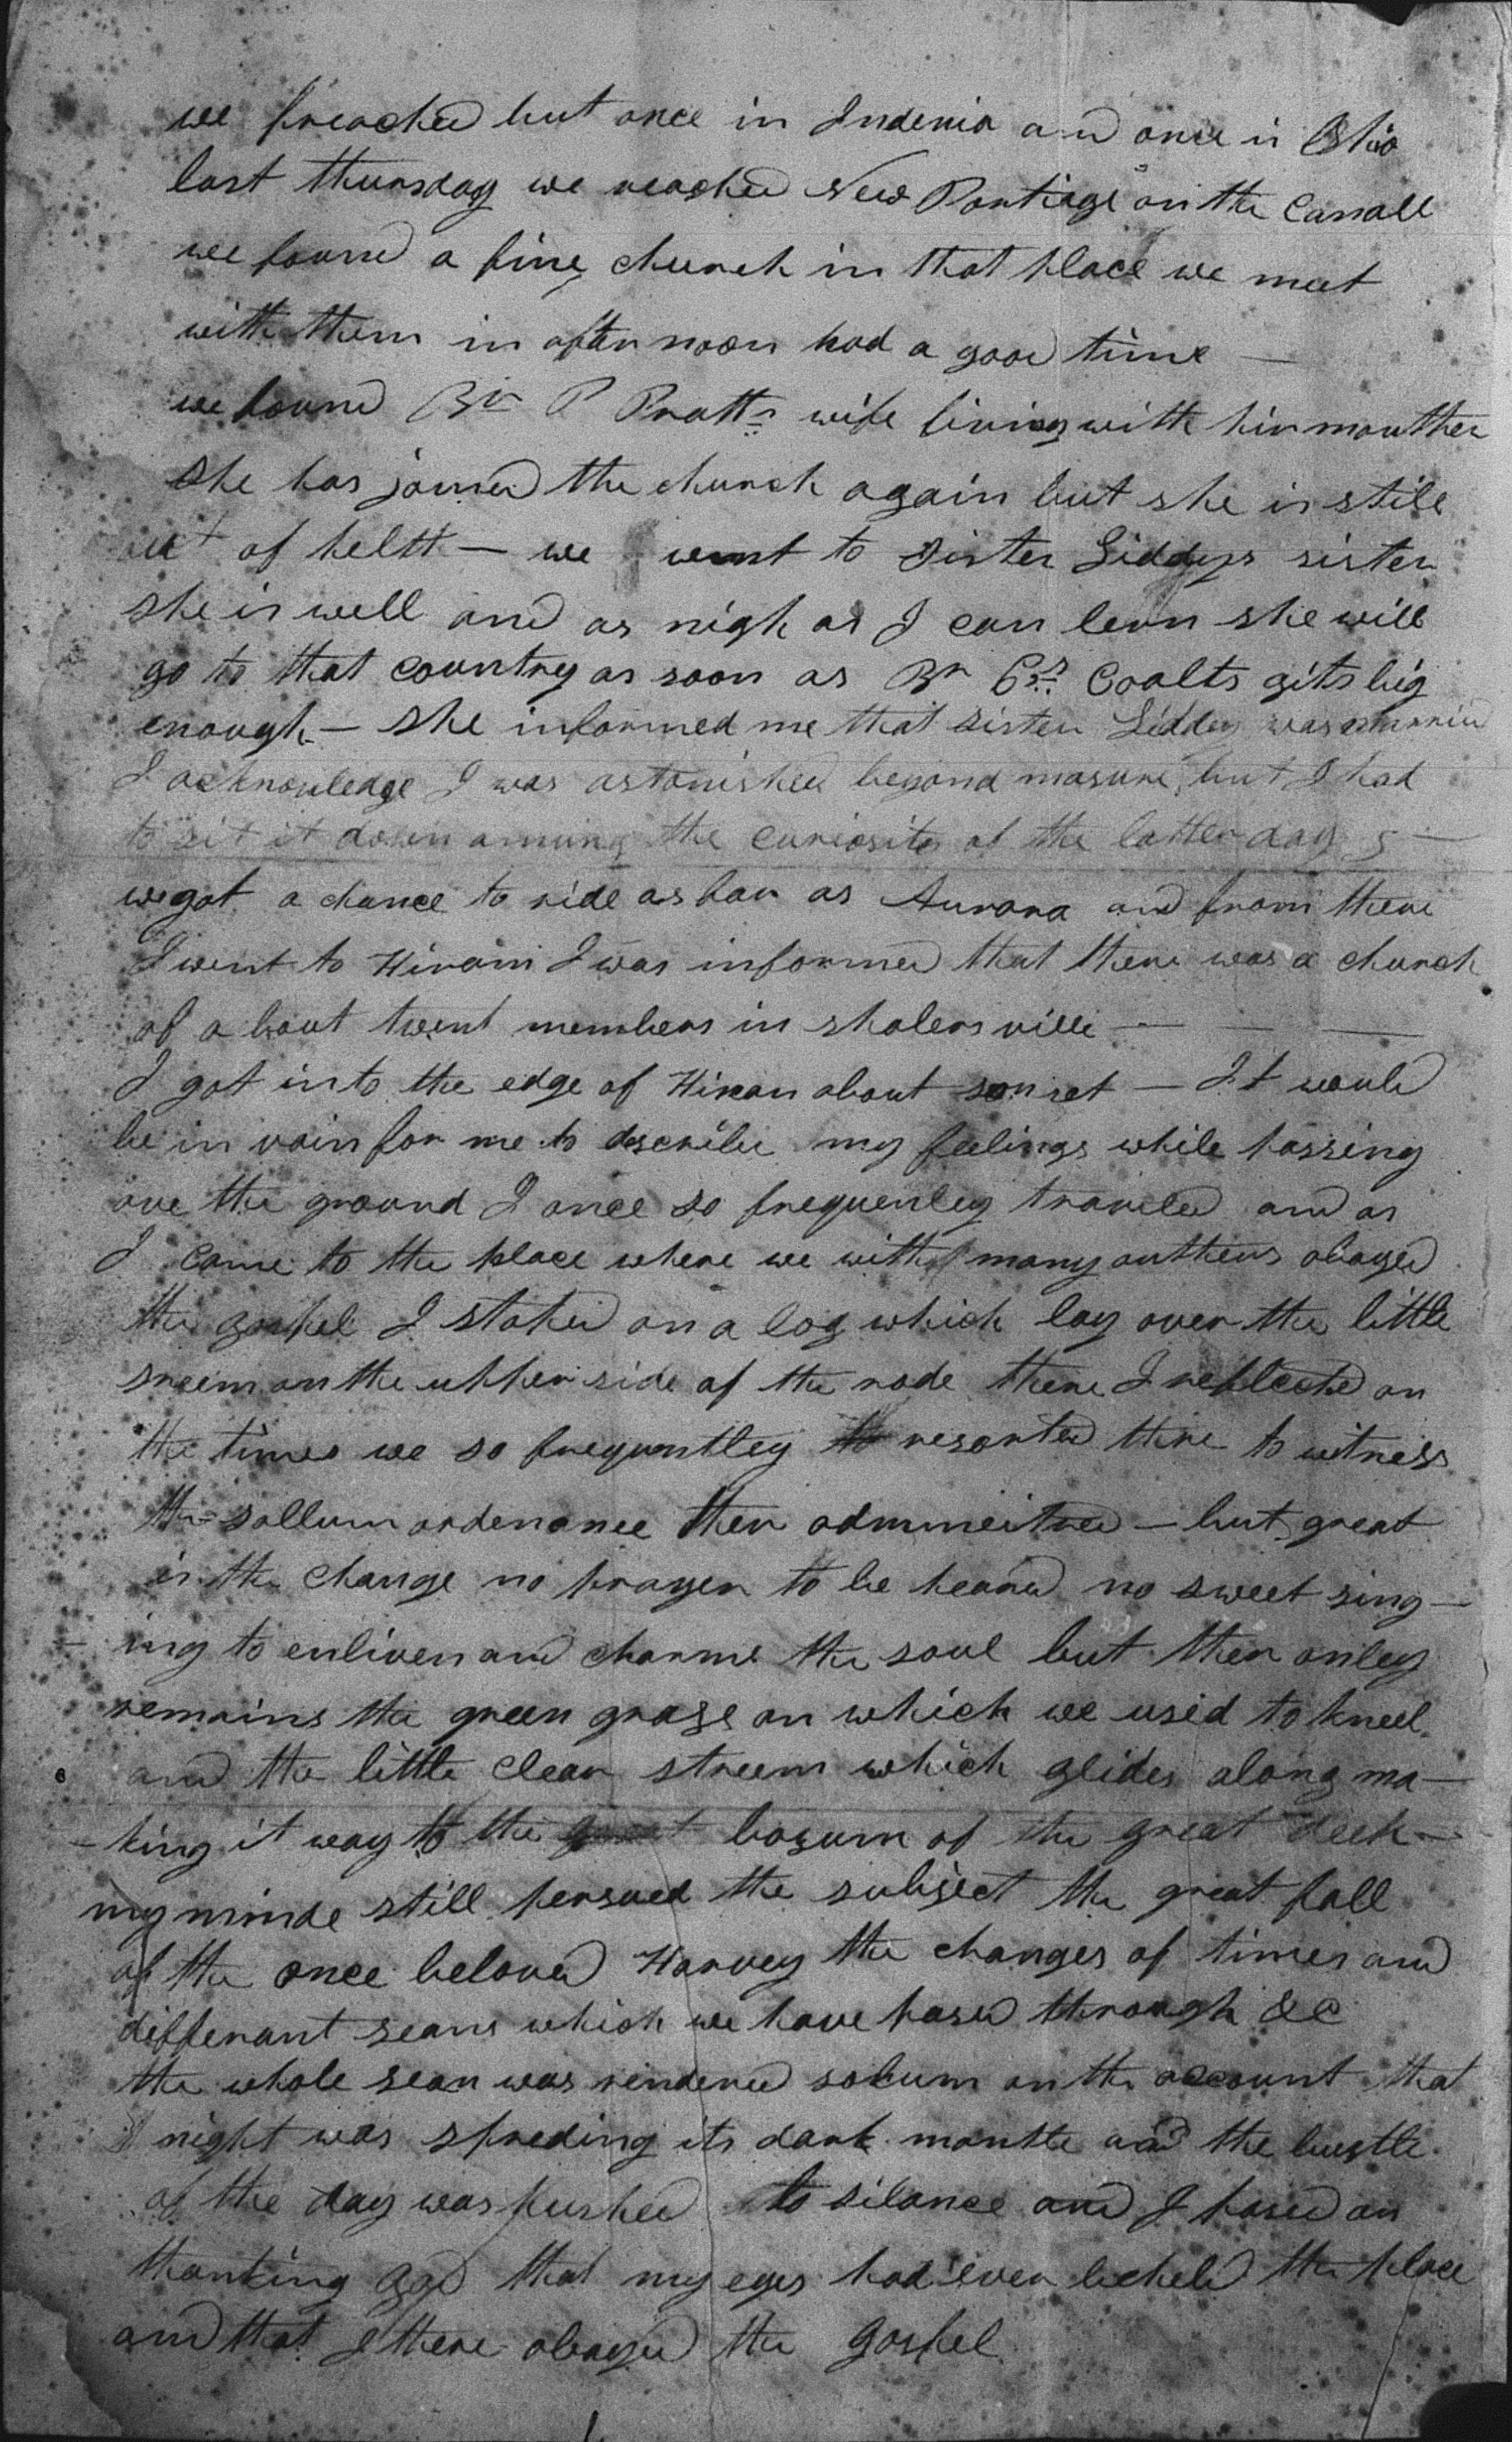 we preached but once in Indenia and once in Ohio
last thursday we reached New Portiage on the Canall
we found a fine church in that place we meet
with them in after noon had a good time —
we found Br P Pratts wife living with hir mouther
she has joined the church again but she is still
out of heltt — we went to Sister Liddys sister
she is well and as nigh as I can lern she will
go to that country as soon as Br C's Coalts gits big
enough — she informed me that sister Liddy was marrid
I acknowledge I was astonished beyond masure, but I had
to sit it down amung the curiosity of the latter days —
we got a chance to ride as far as Aurora and from there
I went to Hiram I was informed that there was a church
of a bout twent members in shalersville — — —
I got into the edge of Hiram about sonset — It would
be in vain for me to describe my feelings while passing
ove the ground I once so frequenley traveled and as
I came to the place where we with many authers obayed
the gospel I stoped on a log which lay over the little
sreem on the upper side of the rode there I reflected on
the times we so frequentley resorted there to witness
the sollum ordenance then admineitred — but great
is the change no prayer to be heard no sweet sing—
— ing to enliven and charme the soul but ther onley
remains the green grass on which we used to kneel
and the little clear streem which glides along ma—
—king it way to the bosum of the great deep —
my minde still persued the subject the great fall
of the once beloved Harvey the changes of times and
differant seans which we have pased through &c
the whole sean was rendered solum on the account that
night was spreding its dark mantle and the bustle
of the day was pushed to silance and I pased on
thanking God that my eyes had ever beheld the place
and that I there obayed the gospel